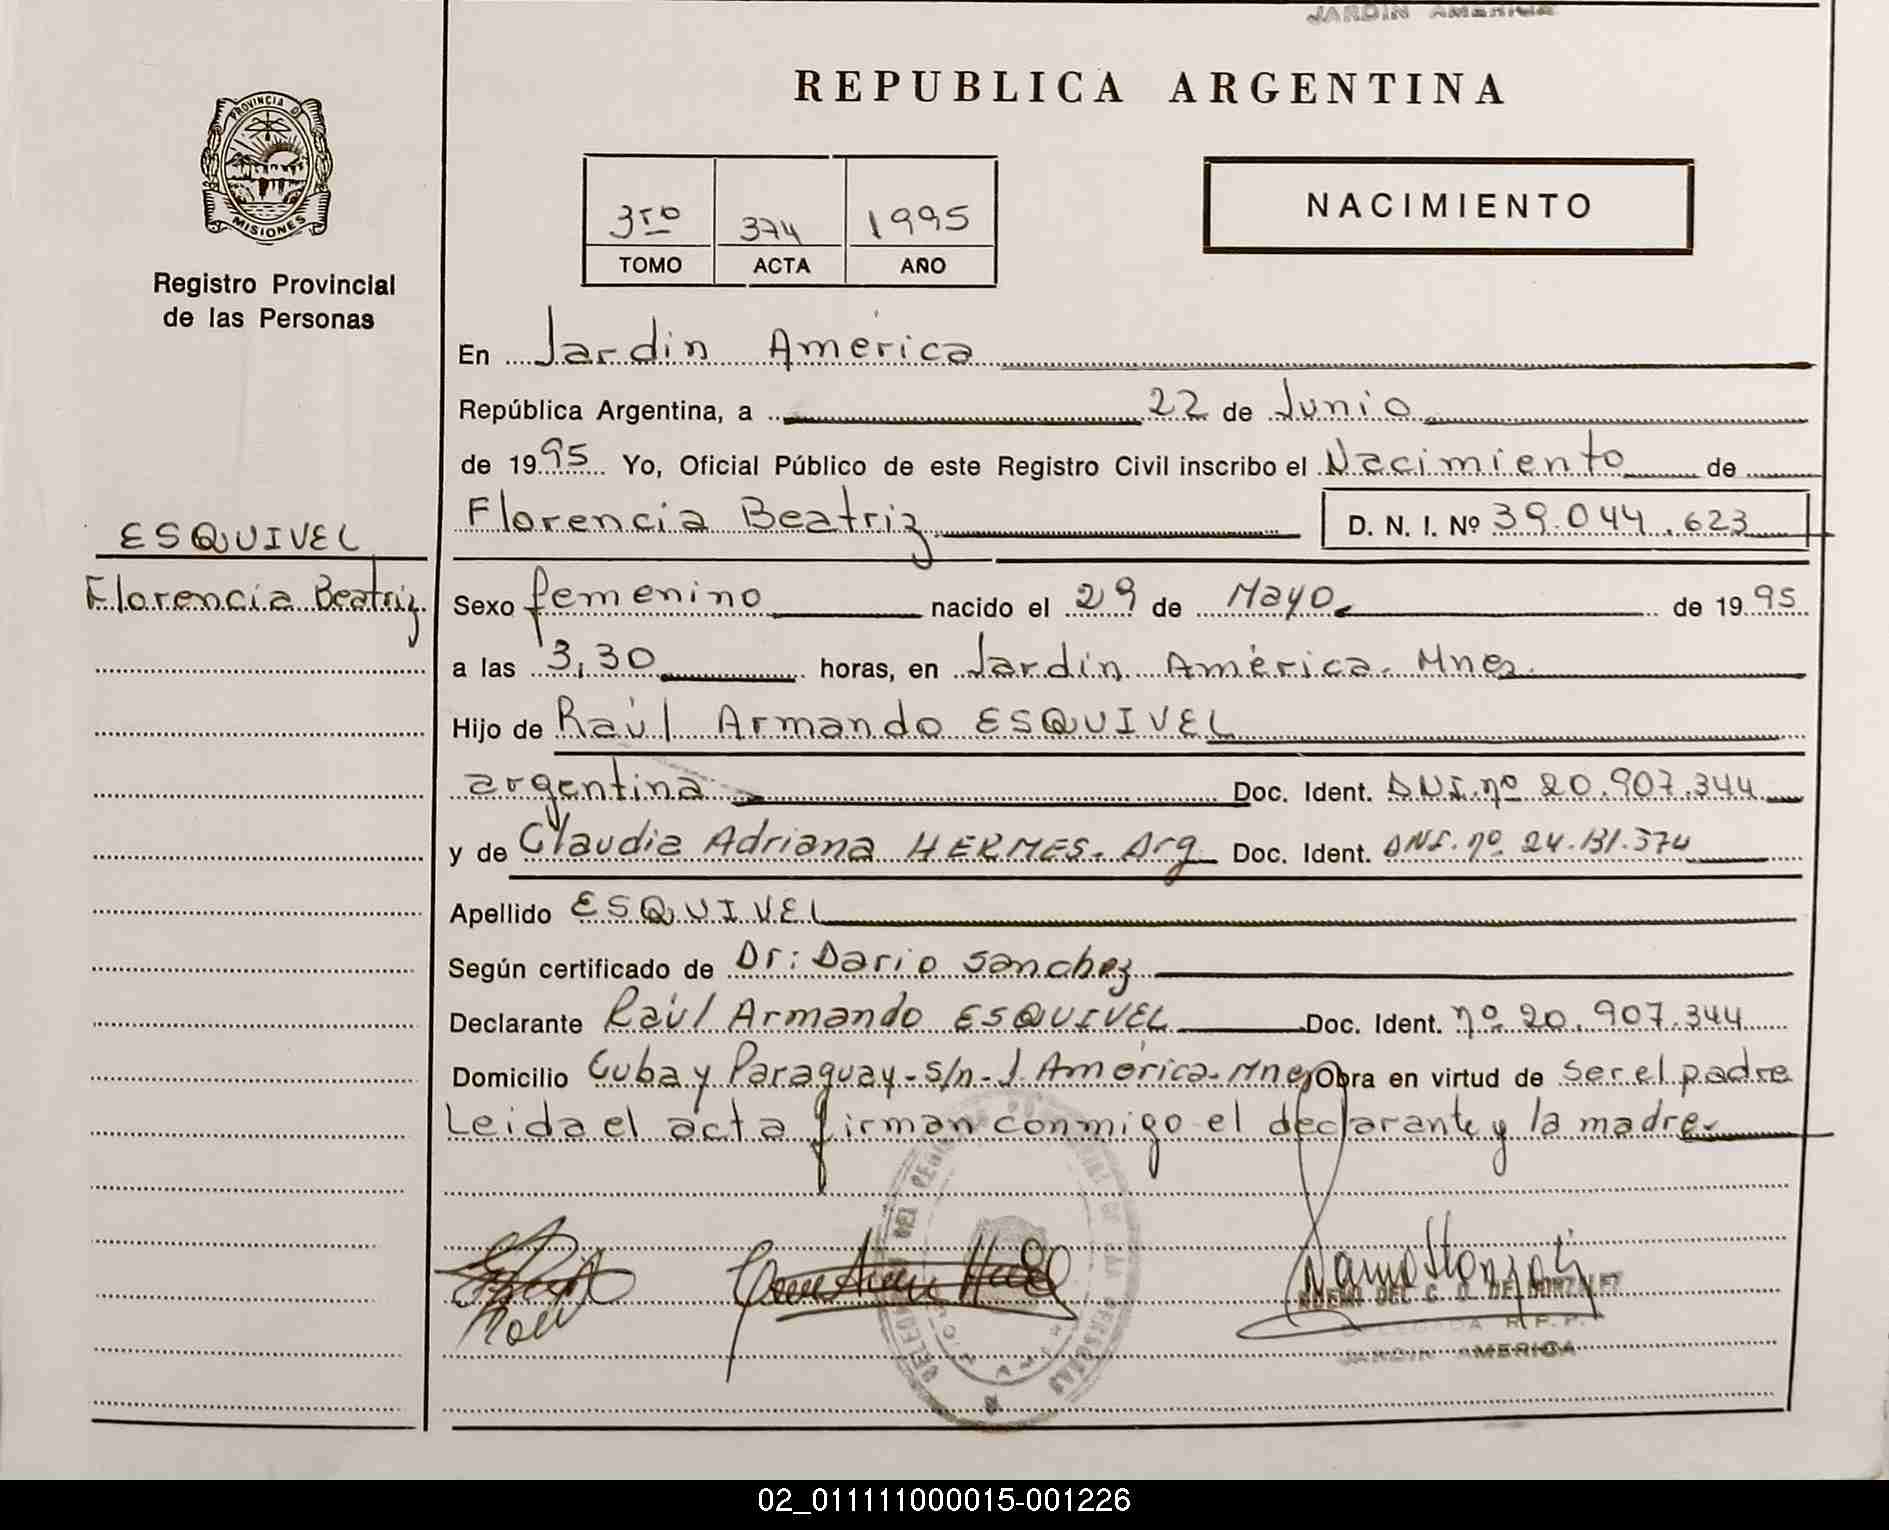 JARDIN AMERICA
REPUBLICA ARGENTINA
PROVINCIA D
MISIONES
Registro Provincial
de las Personas
3ro 374 1995
TOMO ACTA AÑO
NACIMIENTO
En Jardin América
República Argentina, a 22 de Junio
de 1995 Yo, Oficial Público de este Registro Civil inscribo el Nacimiento de
Florencia Beatriz D. N. I. Nº 39.044.623
ESQUIVEL
Florencia Beatriz
Sexo femenino nacido el 29 de Mayo de 1995
a las 3,30 horas, en Jardin América. Mnes.
Hijo de Raúl Armando ESQUIVEL
argentina Doc. Ident. DNI. nº 20.907.344
y de Claudia Adriana HERMES. Arg Doc. Ident. DNI. nº 24.131.374
Apellido ESQUIVEL
Según certificado de Dr: Dario Sanchez
Declarante Raúl Armando ESQUIVEL Doc. Ident. nº 20.907.344
Domicilio Cuba y Paraguay - s/n - J. América - Mnes Obra en virtud de ser el padre
Leida el acta firman conmigo el declarante y la madre
DE GONZALEZ
DELEGADA R.P.P.
JARDIN AMERICA
02_011111000015-001226